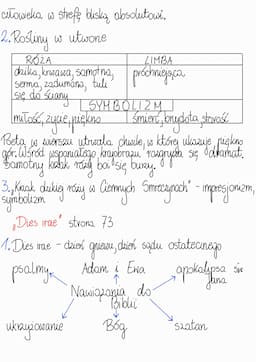 człowieka w strefę bliską absolutowi.
2. Rośliny w utworze
RÓŻA
LIMBA
dzika, krwawa, samotna,
senna, zadumana, tuli
się do ściany
próchniejąca
SYMBOLIZM
miłość, życie, piękno
śmierć, brzydota, starość
Poeta w wierszu utrwala chwile, w której ukazuje piękno
gór. Wśród wspaniałego krajobrazu rozgrywa się dramat.
Samotny krzak róży boi się burzy.
3. "Krzak dzikiej róży w Ciemnych Smreczynach" - impresjonizm,
symbolizm
"Dies irae" strona 73
1. Dies irae - dzień gniewu, dzień sądu ostatecznego
psalmy
Adam i Ewa
apokalipsa św
Jana
Nawiązania do
Biblii
ukrzyżowanie
Bóg
szatan